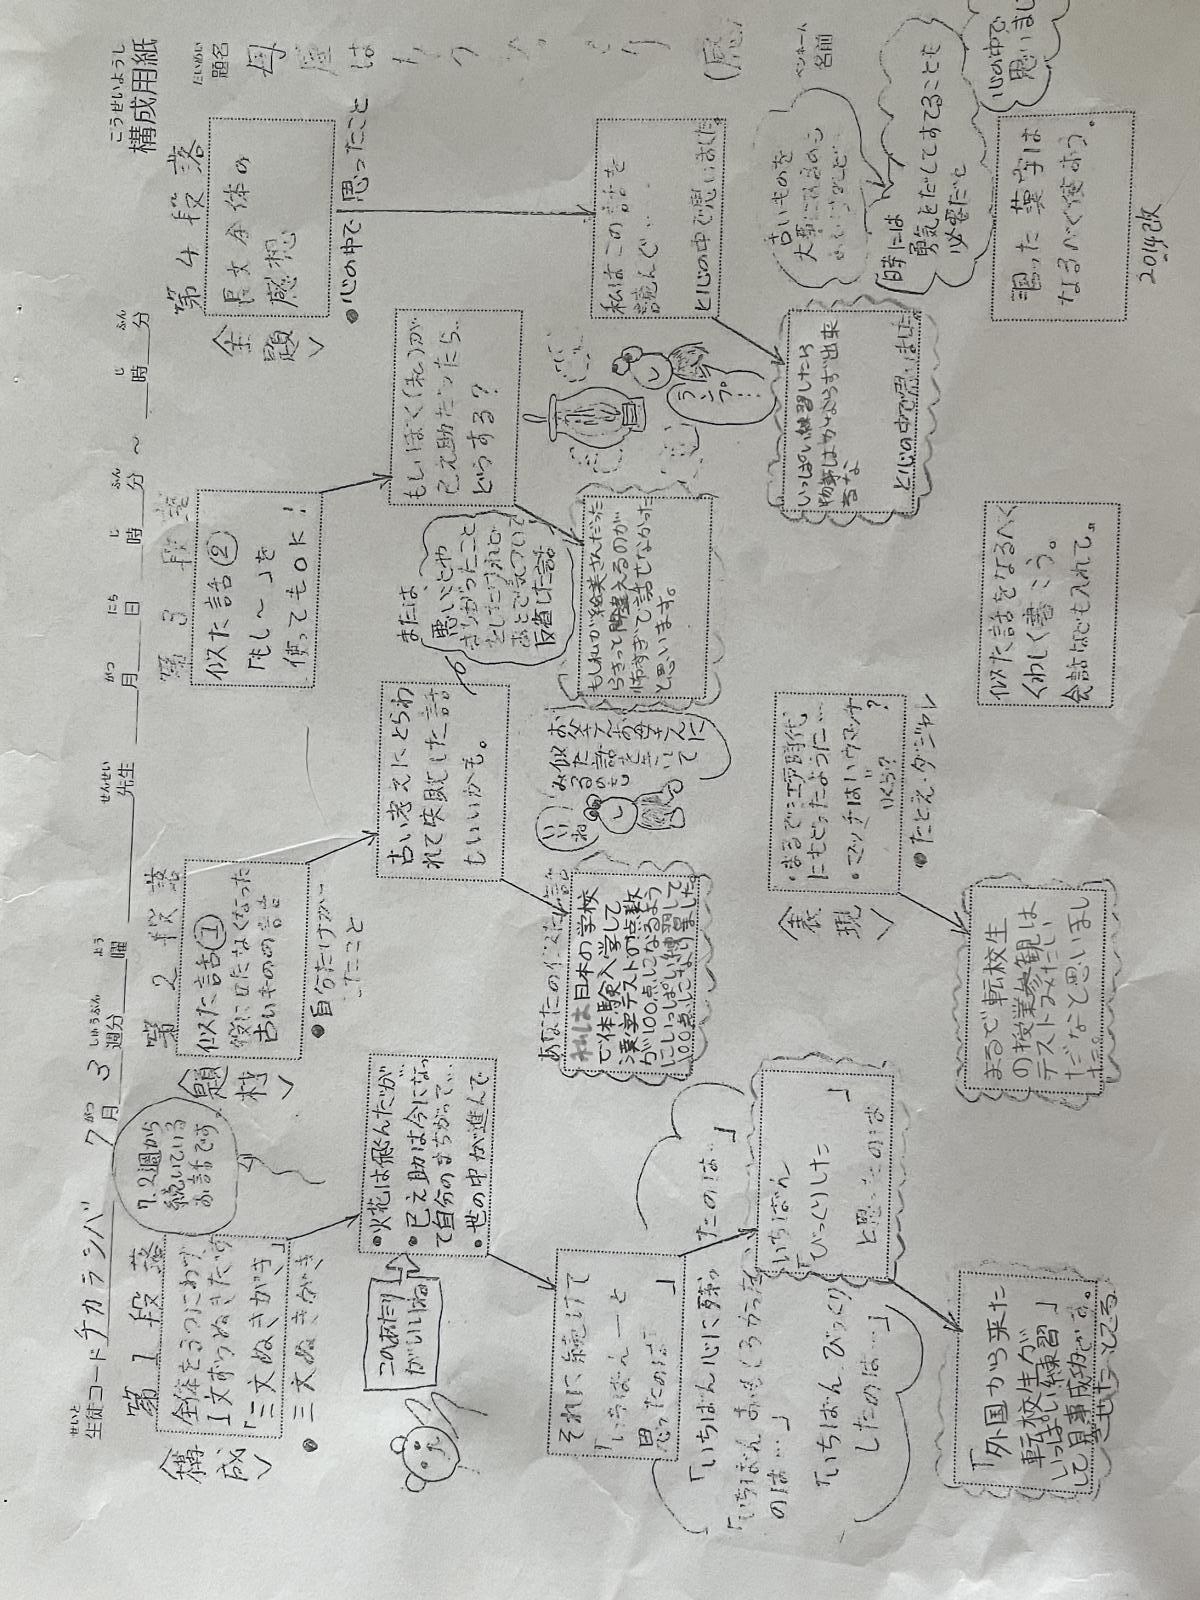 構成用紙
こうせいようし
生徒コード チカラシバ 7月 3週分 ___曜 ___先生 ___月___日___時___分～___時___分
題名 母屋は
ペンネーム
名前
〈構成〉
第1段落
全体を3つにわけ
1文ずつぬきだす
「三文ぬきがき」
●三文ぬきがき
7.2週から
続いている
お話です。
このあたり
がいいね
●火花は飛んだが…
●巳之助は今になっ
て自分のまちがって…
●世の中が進んで
それに続けて
「いちばん―と
思ったのは… 」
「いちばん心に残っ
たのは…」
「いちばんおもしろかった
のは…」
「いちばんびっくり
したのは…」
「いちばん
びっくりした 」
と思ったのは
「外国から来た
転校生が
いっぱい練習」
して見事成功です。
〈題材〉
第2段落
似た話①
役に立たなくなった
古いものの話
●自分だけが…
したこと
古い考えにとらわ
れて失敗した話
もいいかも。
あなたの似た話
私は日本の学校
で体験入学して
漢字テストの点数
が100点になるよう
にいっぱい練習して
100点になりました。
いいね
お父さんお母さんに
似た話を聞いて
みるのも
第3段落
似た話②
「もし～」を
使ってもOK!
もしぼく(私)が
巳之助だったら…
どうする?
または、
悪いことや
まちがったこと
をしたけれど
あとで気づいて
反省した話
もしわれが絵美さんだった
らきっと間違えるのが
怖すぎて話せなかった
と思います。
ランプ…
〈表現〉
・まるで江戸時代
にもどったように…
・マッチはハウマッチ?
いくら?
●たとえ・ダジャレ
まるで転校生
の授業参観は
テストみたい
だなと思いまし
た。
似た話をなるべく
くわしく書こう。
会話なども入れて。
〈主題〉
第4段落
長文全体の
感想
●心の中で思ったこと
私はこの話を
読んで…
と心の中で思いました。
古いものを
大事にするのも
いいけれど
時には
勇気をだしてすてることも
必要だと
心の中で
思いまし
いっぱい練習したら
物事はかならず出来
るな
と心の中で思いました。
習った漢字は
なるべく使おう。
2014改